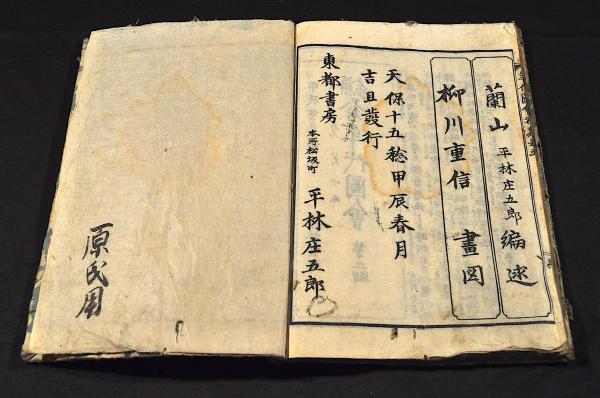 蘭山 平林庄五郎 編述
柳川重信 畫図
天保十五稔甲辰春月
吉旦發行
東都書房 本所松坂町 平林庄五郎
原氏用